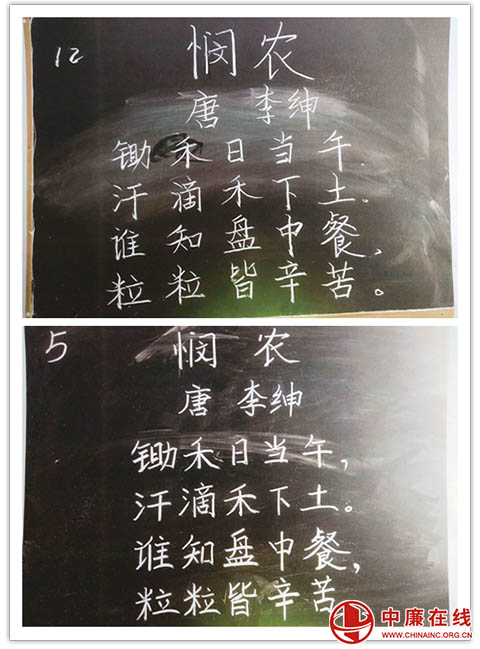 12
悯农
唐 李绅
锄禾日当午
汗滴禾下土.
谁知盘中餐、
粒粒皆辛苦。
5
悯农
唐 李绅
锄禾日当午，
汗滴禾下土。
谁知盘中餐，
粒粒皆辛苦
中廉在线
WWW.CHINAINC.ORG.CN